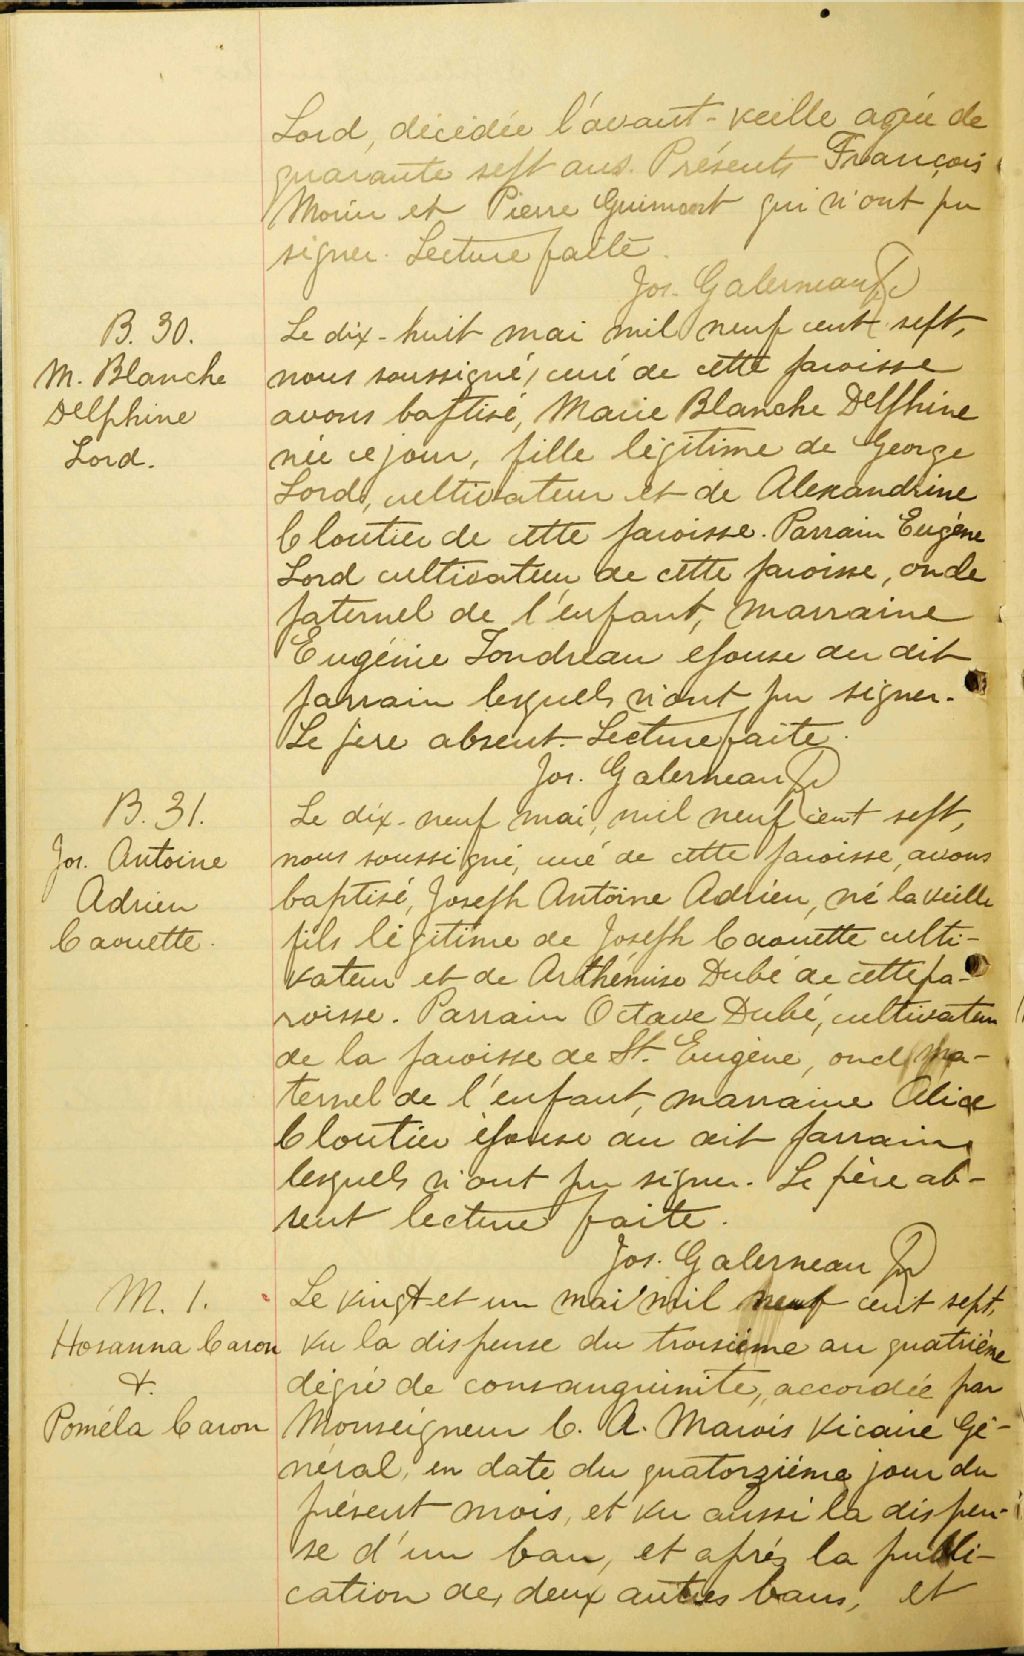 Lord, décédée l'avant-veille agée de
quarante sept ans. Présents François
Morin et Pierre Guimont qui n'ont pu
signer. Lecture faite.
Jos. Galerneau Ptr
B. 30.
M. Blanche
Delphine
Lord.
Le dix-huit mai mil neuf cent sept,
nous soussigné, curé de cette paroisse
avons baptisé, Marie Blanche Delphine
née ce jour, fille légitime de George
Lord, cultivateur et de Alexandrine
Cloutier de cette paroisse. Parrain Eugène
Lord cultivateur de cette paroisse, oncle
paternel de l'enfant, marraine
Eugénie Fondreau épouse du dit
parrain lesquels n'ont pu signer.
Le père absent. Lecture faite.
Jos. Galerneau Ptr
B. 31.
Jos. Antoine
Adrien
Caouette.
Le dix-neuf mai, mil neuf cent sept,
nous soussigné, curé de cette paroisse, avons
baptisé, Joseph Antoine Adrien, né la veille
fils légitime de Joseph Caouette culti-
vateur et de Arthémise Dubé de cette pa-
roisse. Parrain Octave Dubé, cultivateur
de la paroisse de St. Eugène, oncl ma-
ternel de l'enfant, marraine Alice
Cloutier épouse du dit parrain
lesquels n'ont pu signer. Le père ab-
sent lecture faite.
Jos. Galerneau Ptr
M. 1.
Hosanna Caron
&.
Poméla Caron
Le vingt-et un mai mil neuf cent sept,
vu la dispense du troisième au quatrième
dégré de consanguinité, accordée par
Monseigneur C. A. Marois Vicaire Gé-
néral, en date du quatorzième jour du
présent mois, et vu aussi la dispen-
se d'un ban, et après la publi-
cation de deux autres bans, et